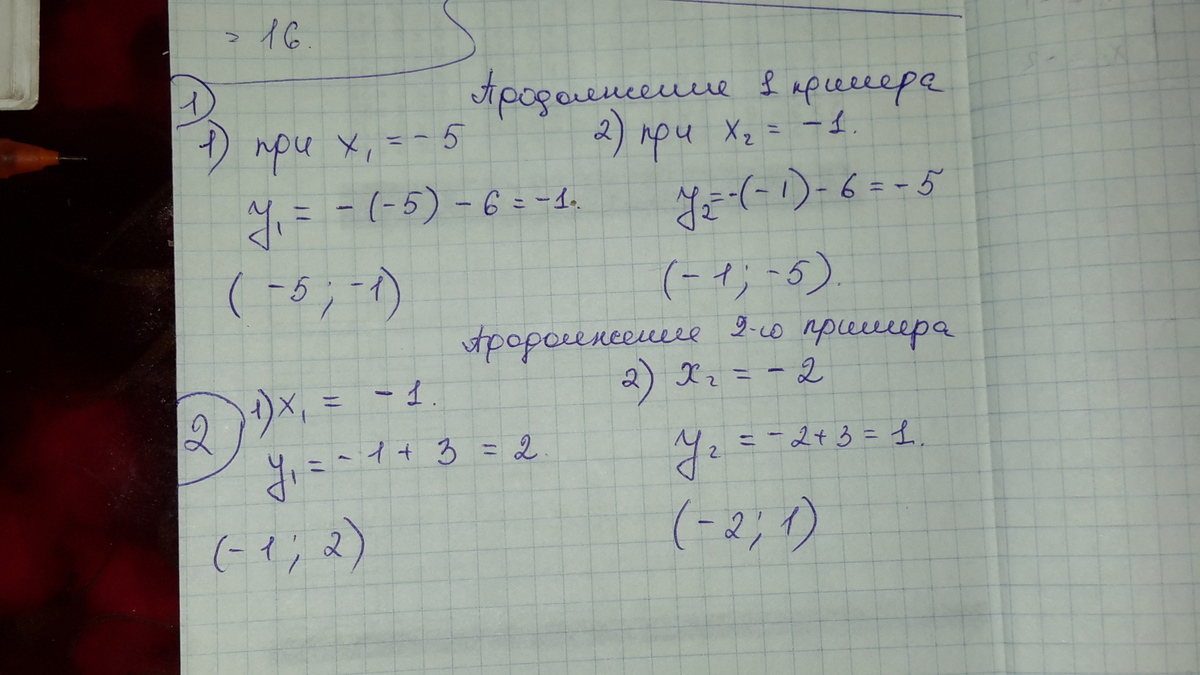 = 16.
Продолжение 1 примера
1
1) при x₁ = - 5
2) при x₂ = - 1.
y₁ = - (-5) - 6 = -1.
y₂ = -(-1) - 6 = - 5
( -5 ; -1)
(- 1 ; -5).
Продолжение 2-го примера
2
1) x₁ = - 1.
2) x₂ = - 2
y₁ = - 1 + 3 = 2.
y₂ = - 2 + 3 = 1.
(- 1 ; 2)
(- 2 ; 1)